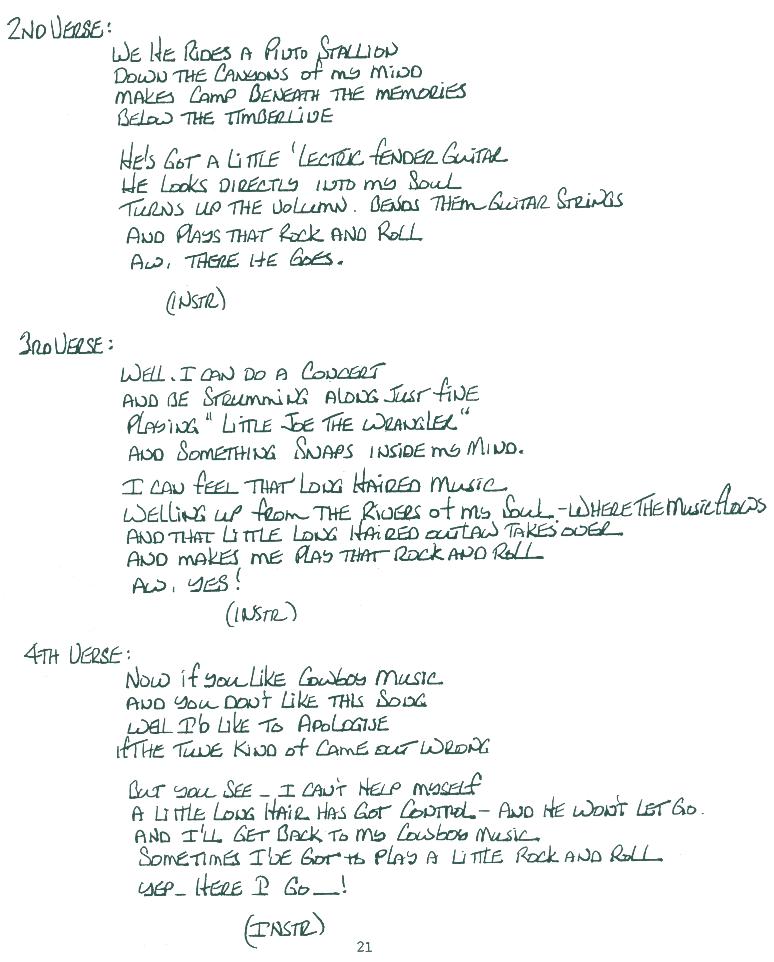 2ND VERSE:
WE HE RIDES A PINTO STALLION
DOWN THE CANYONS OF MY MIND
MAKES CAMP BENEATH THE MEMORIES
BELOW THE TIMBERLINE
HE'S GOT A LITTLE 'LECTRIC FENDER GUITAR
HE LOOKS DIRECTLY INTO MY SOUL
TURNS UP THE VOLUMN. BENDS THEM GUITAR STRINGS
AND PLAYS THAT ROCK AND ROLL
AW, THERE HE GOES.
(INSTR)
3RD VERSE:
WELL. I CAN DO A CONCERT
AND BE STRUMMING ALONG JUST FINE
PLAYING "LITTLE JOE THE WRANGLER"
AND SOMETHING SNAPS INSIDE MY MIND.
I CAN FEEL THAT LONG HAIRED MUSIC
WELLING UP FROM THE RIVERS OF MY SOUL - WHERE THE MUSIC FLOWS
AND THAT LITTLE LONG HAIRED OUTLAW TAKES OVER
AND MAKES ME PLAY THAT ROCK AND ROLL
AW, YES!
(INSTR)
4TH VERSE:
NOW IF YOU LIKE COWBOY MUSIC
AND YOU DON'T LIKE THIS SONG
WELL I'D LIKE TO APOLOGIVE
IF THE TUNE KIND OF CAME OUT WRONG
BUT YOU SEE - I CAN'T HELP MYSELF
A LITTLE LONG HAIR HAS GOT CONTROL - AND HE WON'T LET GO.
AND I'LL GET BACK TO MY COWBOY MUSIC
SOMETIMES I'VE GOT TO PLAY A LITTLE ROCK AND ROLL
YEP - HERE I GO -!
(INSTR)
21